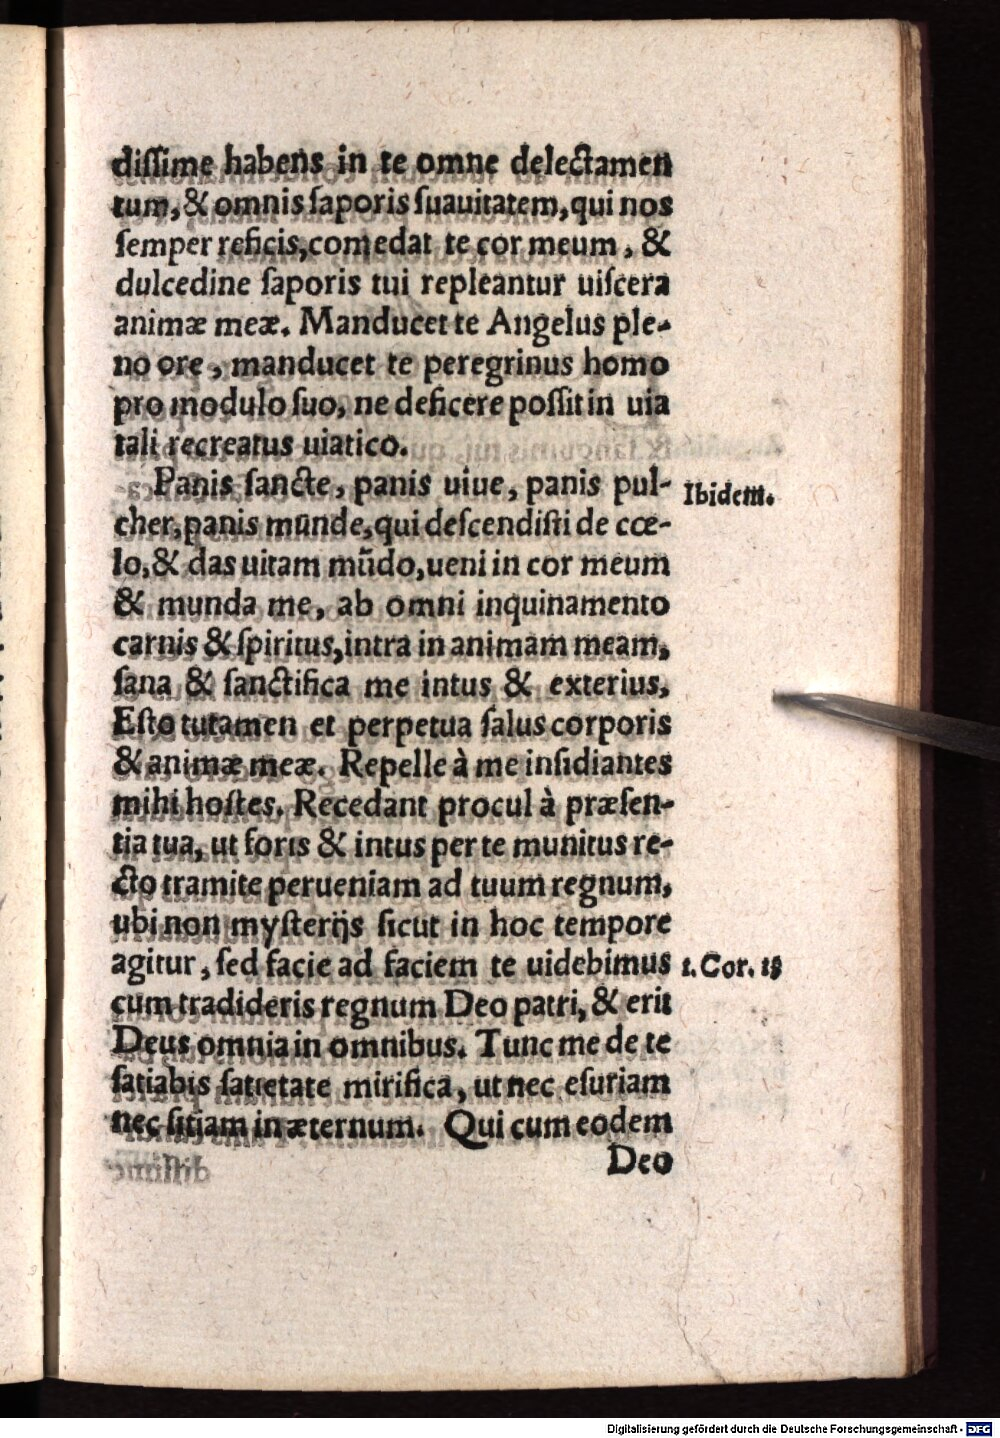 diſſime habens in te omne delectamen
tum, & omnis ſaporis ſuauitatem, qui nos
ſemper reficis, comedat te cor meum, &
dulcedine ſaporis tui repleantur uiſcera
animæ meæ. Manducet te Angelus ple-
no ore, manducet te peregrinus homo
pro modulo ſuo, ne deficere poſſit in uia
tali recreatus uiatico.
Panis ſancte, panis uiue, panis pul-
Ibidem.
cher, panis munde, qui deſcendiſti de cœ-
lo, & das uitam mũdo, ueni in cor meum
& munda me, ab omni inquinamento
carnis & ſpiritus, intra in animam meam,
ſana & ſanctifica me intus & exterius,
Eſto tutamen et perpetua ſalus corporis
& animæ meæ. Repelle à me inſidiantes
mihi hoſtes. Recedant procul à præſen-
tia tua, ut foris & intus per te munitus re-
cto tramite perueniam ad tuum regnum,
ubi non myſterijs ſicut in hoc tempore
agitur, ſed facie ad faciem te uidebimus
1. Cor.
cum tradideris regnum Deo patri, & erit
Deus omnia in omnibus. Tunc me de te
ſatiabis ſatietate mirifica, ut nec eſuriam
nec ſitiam in æternum. Qui cum eodem
Deo
Digitalisierung gefördert durch die Deutsche Forschungsgemeinschaft - DFG